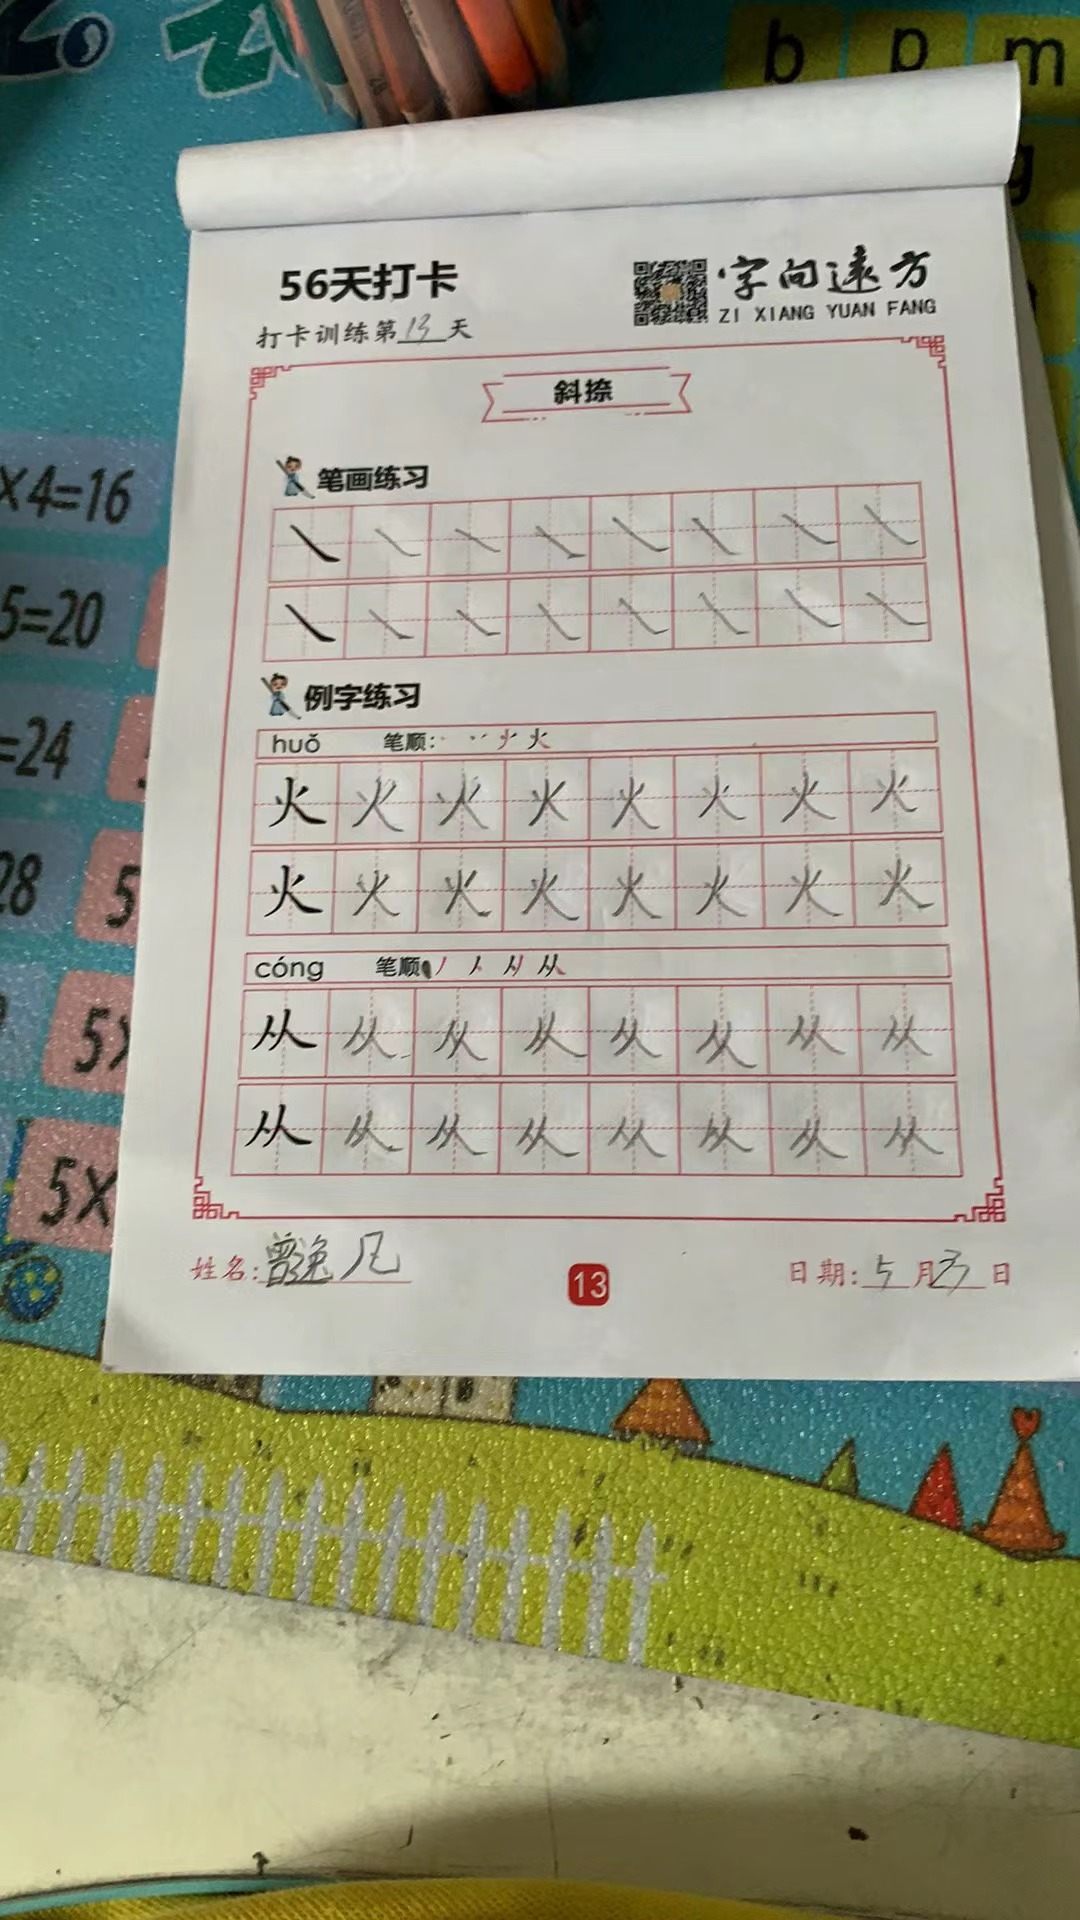 b p m
g
56天打卡
字向远方
ZI XIANG YUAN FANG
打卡训练第13天
斜捺
×4=16
笔画练习
5=20
例字练习
=24
huǒ 笔顺:
火 火 火 火 火 火 火 火
28
5
火 火 火 火 火 火 火 火
cóng 笔顺
5×
从 从 从 从 从 从 从 从
从 从 从 从 从 从 从 从
5×
姓名:曾逸凡
13
日期:5月23日